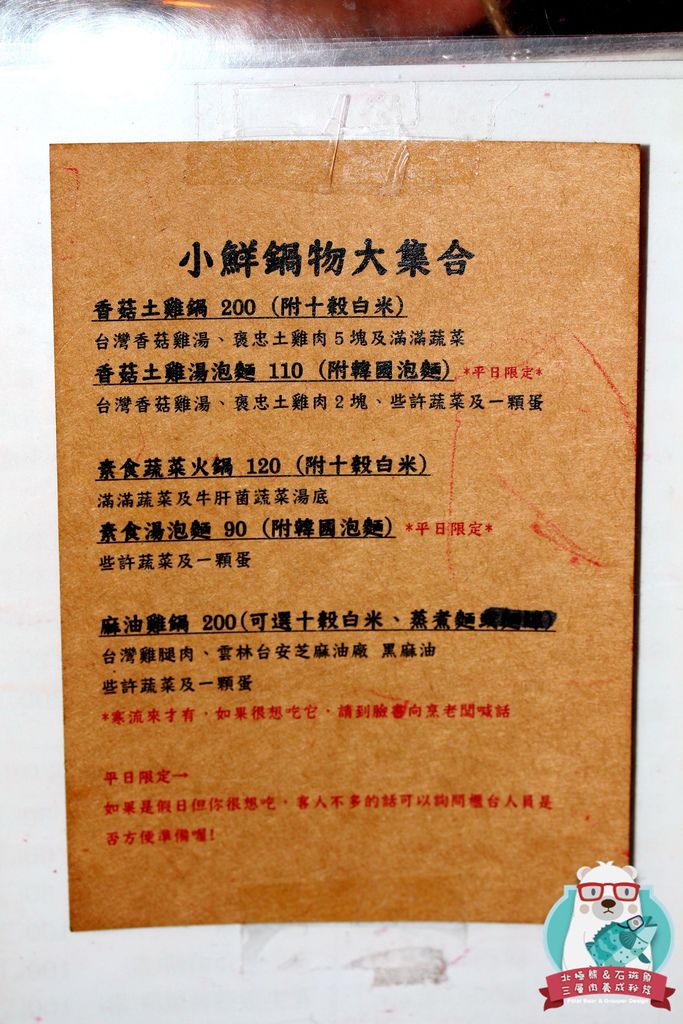 小鮮鍋物大集合
香菇土雞鍋 200 (附十穀白米)
台灣香菇雞湯、褒忠土雞肉5塊及滿滿蔬菜
香菇土雞湯泡麵 110 (附韓國泡麵) *平日限定*
台灣香菇雞湯、褒忠土雞肉2塊、些許蔬菜及一顆蛋
素食蔬菜火鍋 120 (附十穀白米)
滿滿蔬菜及牛肝菌蔬菜湯底
素食湯泡麵 90 (附韓國泡麵) *平日限定*
些許蔬菜及一顆蛋
麻油雞鍋 200(可選十穀白米、蒸煮麵
台灣雞腿肉、雲林台安芝麻油廠 黑麻油
些許蔬菜及一顆蛋
*寒流來才有，如果很想吃它，請到臉書向烹老闆喊話
平日限定→
如果是假日但你很想吃，客人不多的話可以詢問櫃台人員是
否方便準備喔!
北極熊&石斑魚
三層肉養成秘笈
Polar Bear & Grouper Design